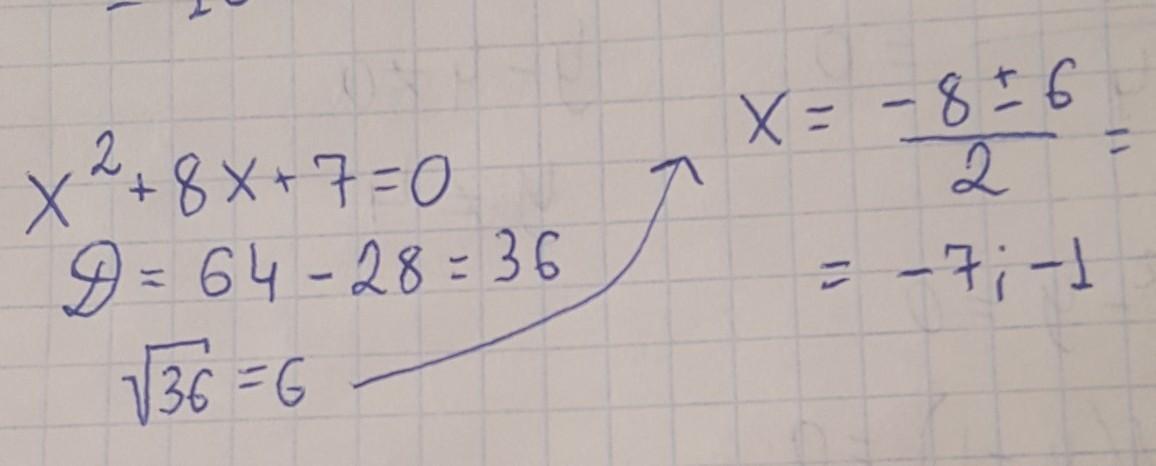 x² + 8x + 7 = 0
D = 64 - 28 = 36
√36 = 6
x = (-8 ± 6)/2 =
= -7; -1